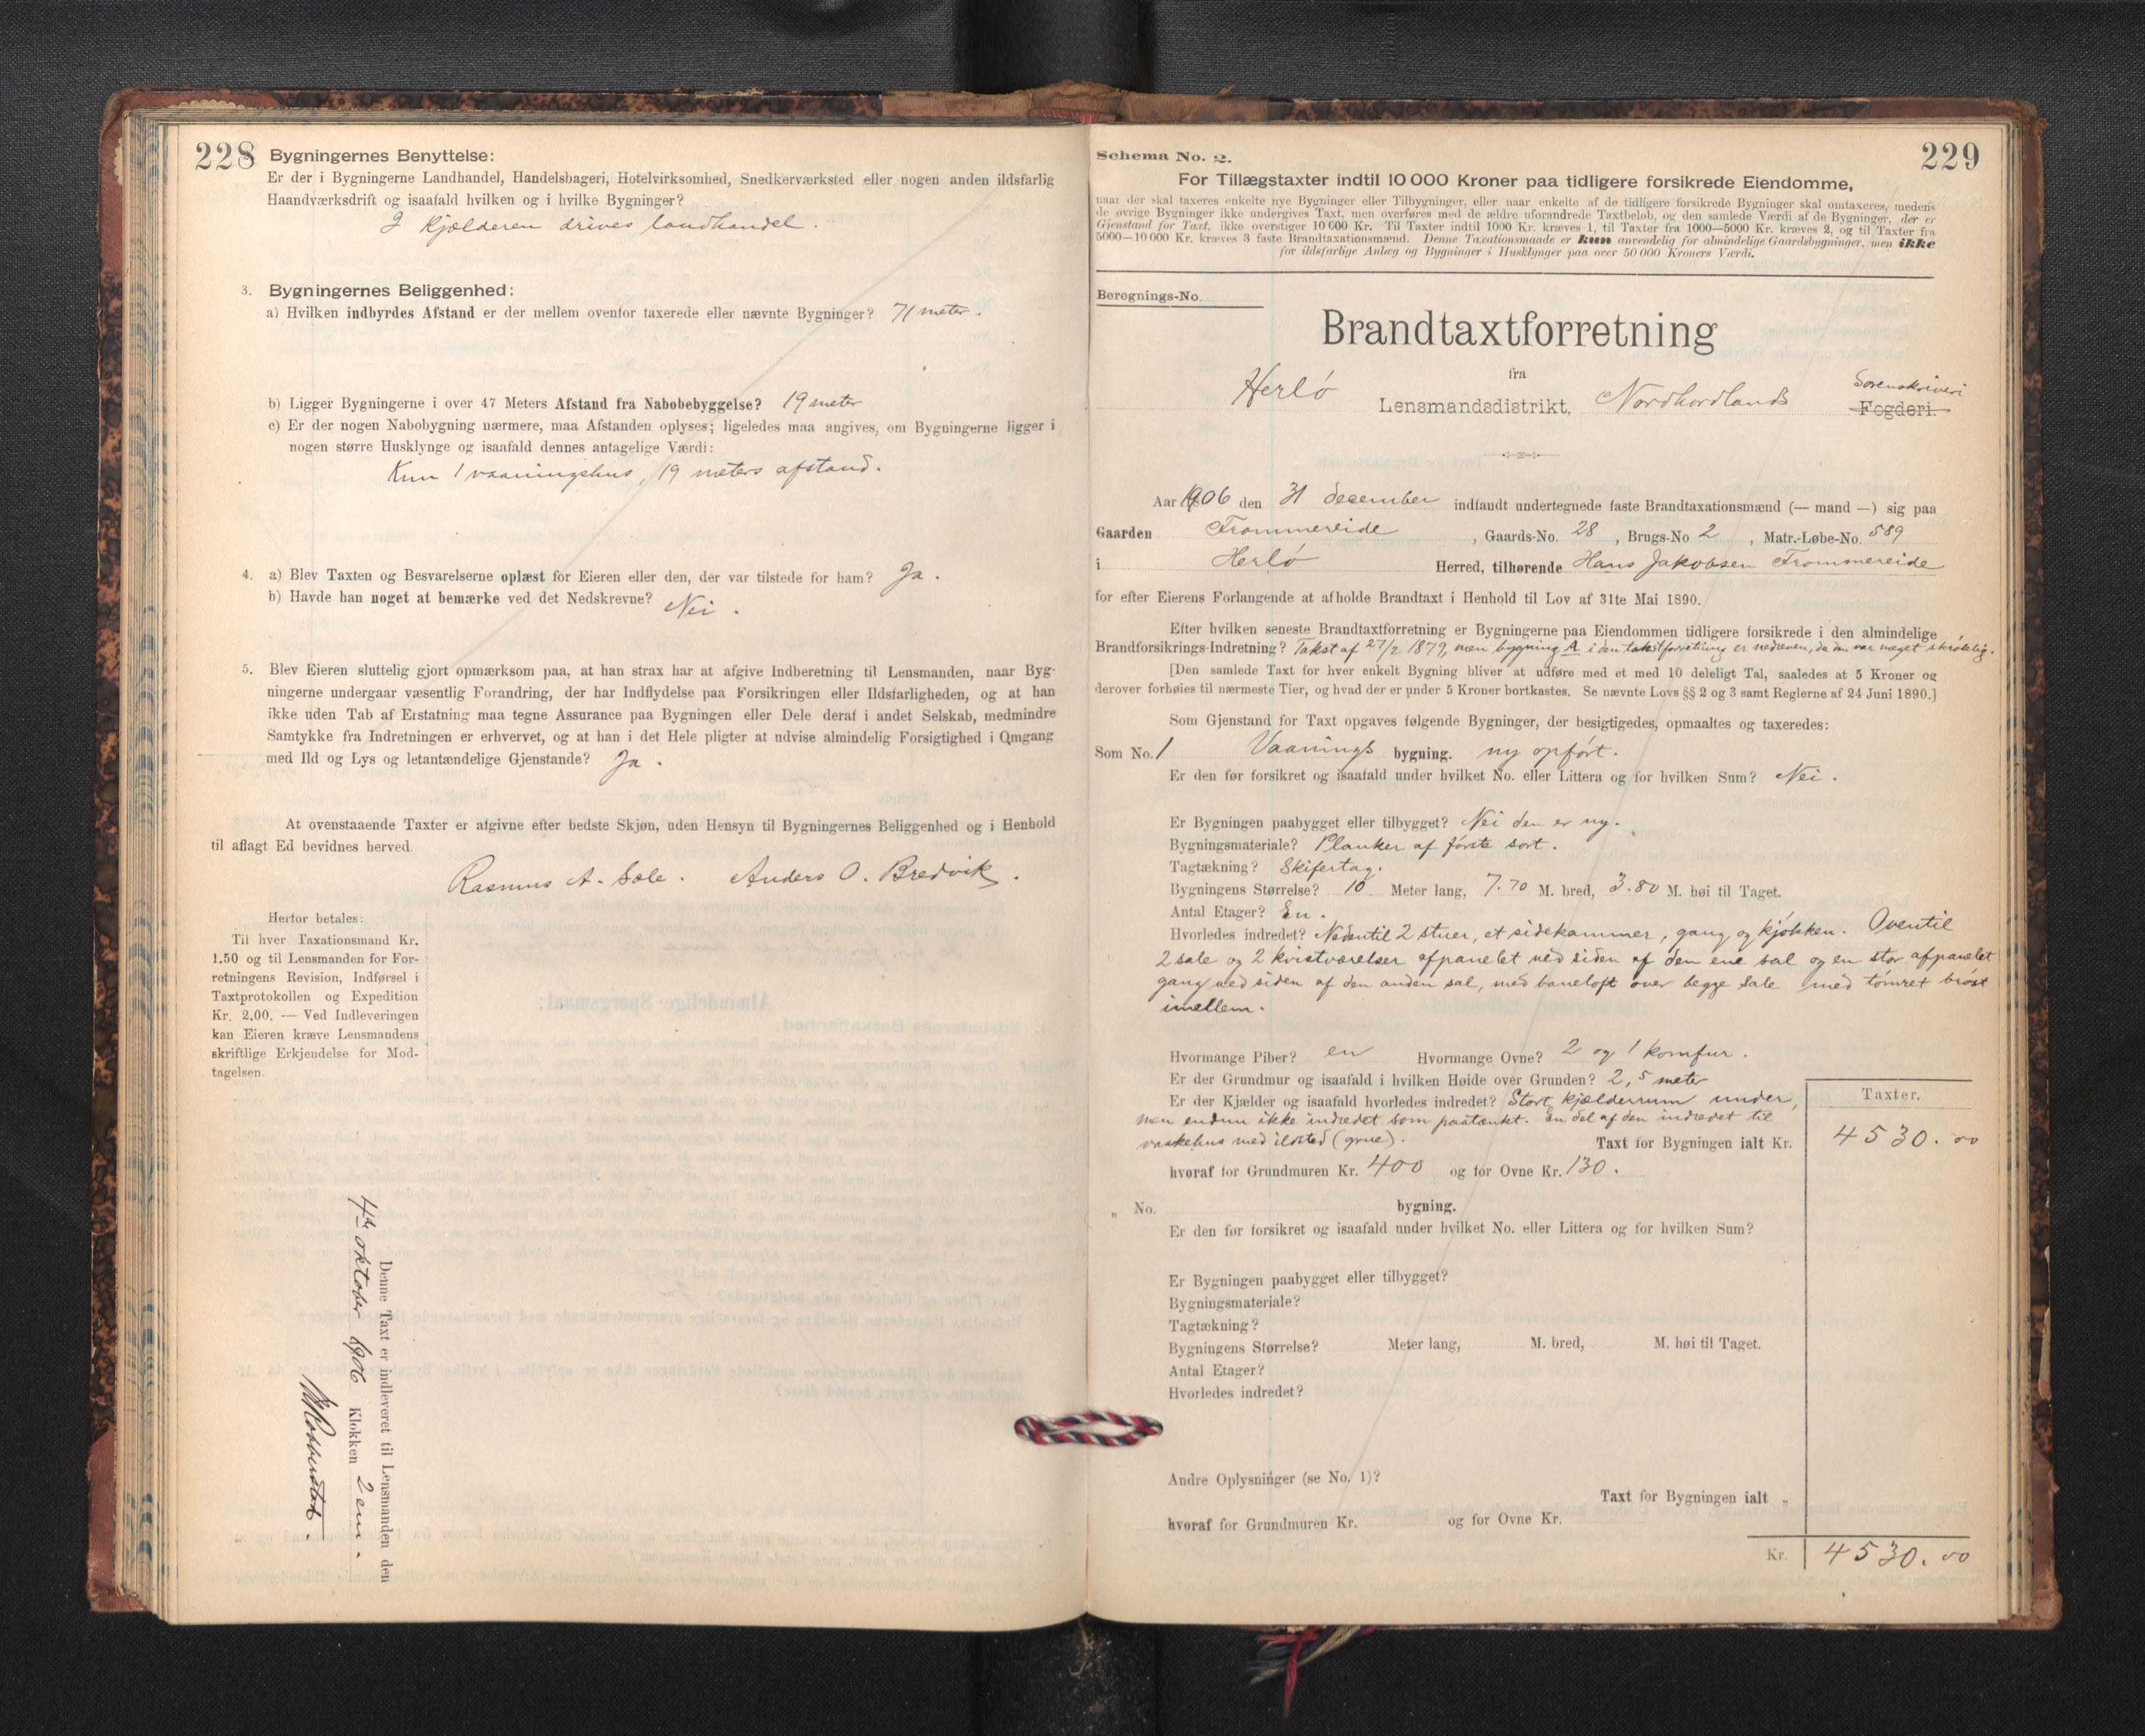 228
Bygningernes Benyttelse:
Er der i Bygningerne Landhandel, Handelsbageri, Hotelvirksomhed, Snedkerværksted eller nogen anden ildsfarlig
Haandværksdrift og isaafald hvilken og i hvilke Bygninger?
I kjælderen drives landhandel.
3. Bygningernes Beliggenhed:
a) Hvilken indbyrdes Afstand er der mellem ovenfor taxerede eller nævnte Bygninger? 71 meter.
b) Ligger Bygningerne i over 47 Meters Afstand fra Nabobebyggelse? 19 meter
c) Er der nogen Nabobygning nærmere, maa Afstanden oplyses; ligeledes maa angives, om Bygningerne ligger i
nogen større Husklynge og isaafald dennes antagelige Værdi:
Kun 1 vaaningshus, 19 meters afstand.
4. a) Blev Taxten og Besvarelserne oplæst for Eieren eller den, der var tilstede for ham? Ja.
b) Havde han noget at bemærke ved det Nedskrevne? Nei.
5. Blev Eieren sluttelig gjort opmærksom paa, at han strax har at afgive Indberetning til Lensmanden, naar Byg-
ningerne undergaar væsentlig Forandring, der har Indflydelse paa Forsikringen eller Ildsfarligheden, og at han
ikke uden Tab af Erstatning maa tegne Assurance paa Bygningen eller Dele deraf i andet Selskab, medmindre
Samtykke fra Indretningen er erhvervet, og at han i det Hele pligter at udvise almindelig Forsigtighed i Omgang
med Ild og Lys og letantændelige Gjenstande? Ja.
At ovenstaaende Taxter er afgivne efter bedste Skjøn, uden Hensyn til Bygningernes Beliggenhed og i Henhold
til aflagt Ed bevidnes herved.
Rasmus A. Sole. Anders O. Bredvik.
Herfor betales:
Til hver Taxationsmand Kr.
1.50 og til Lensmanden for For-
retningens Revision, Indførsel i
Taxtprotokollen og Expedition
Kr. 2.00. — Ved Indleveringen
kan Eieren kræve Lensmandens
skriftlige Erkjendelse for Mod-
tagelsen.
Denne Taxt er indleveret til Lensmanden den
4de oktober 1906 Klokken 2 em.
229
Schema No. 2.
For Tillægstaxter indtil 10 000 Kroner paa tidligere forsikrede Eiendomme,
naar der skal taxeres enkelte nye Bygninger eller Tilbygninger, eller naar enkelte af de tidligere forsikrede Bygninger skal omtaxeres, medens
de øvrige Bygninger ikke undergives Taxt, men overføres med de ældre uforandrede Taxtbeløb, og den samlede Værdi af de Bygninger, der er
Gjenstand for Taxt, ikke overstiger 10 000 Kr. Til Taxter indtil 1000 Kr. kræves 1, til Taxter fra 1000—5000 Kr. kræves 2, og til Taxter fra
5000—10 000 Kr. kræves 3 faste Brandtaxationsmænd. Denne Taxationsmaade er kun anvendelig for almindelige Gaardsbygninger, men ikke
for ildsfarlige Anlæg og Bygninger i Husklynger paa over 50 000 Kroners Værdi.
Beregnings-No.
Brandtaxtforretning
fra
Herlø Lensmandsdistrikt, Nordhordlands Fogderi. Sorenskriveri
Aar 1906 den 31 december indfandt undertegnede faste Brandtaxationsmænd (— mand —) sig paa
Gaarden Frommereide, Gaards-No. 28, Brugs-No 2, Matr.-Løbe-No. 589
i Herlø Herred, tilhørende Hans Jakobsen Frommereide
for efter Eierens Forlangende at afholde Brandtaxt i Henhold til Lov af 31te Mai 1890.
Efter hvilken seneste Brandtaxtforretning er Bygningerne paa Eiendommen tidligere forsikrede i den almindelige
Brandforsikrings-Indretning? Takst af 27/2 1879, men bygning A i den takstforretning er nedreven, da den var meget skrøbelig.
[Den samlede Taxt for hver enkelt Bygning bliver at udføre med et med 10 deleligt Tal, saaledes at 5 Kroner og
derover forhøies til nærmeste Tier, og hvad der er under 5 Kroner bortkastes. Se nævnte Lovs §§ 2 og 3 samt Reglerne af 24 Juni 1890.]
Som Gjenstand for Taxt opgaves følgende Bygninger, der besigtigedes, opmaaltes og taxeredes:
Som No. 1 Vaanings bygning. ny opført.
Er den før forsikret og isaafald under hvilket No. eller Littera og for hvilken Sum? Nei.
Er Bygningen paabygget eller tilbygget? Nei den er ny.
Bygningsmateriale? Planker af første sort.
Tagtækning? Skifertag.
Bygningens Størrelse? 10 Meter lang, 7.70 M. bred, 3.80 M. høi til Taget.
Antal Etager? En.
Hvorledes indredet? Nedentil 2 stuer, et sidekammer, gang og kjøkken. Oventil
2 sale og 2 kvistværelser afpanelet ved siden af den ene sal og en stor afpanelet
gang ved siden af den anden sal, med baneloft over begge sale med tømret brøst
imellem.
Hvormange Piber? en Hvormange Ovne? 2 og 1 komfur.
Er der Grundmur og isaafald i hvilken Høide over Grunden? 2,5 meter
Er der Kjælder og isaafald hvorledes indredet? Stort kjælderrum under,
men endnu ikke indredet som paatænkt. En del af den indredet til
vaskehus med ildsted (grue).
Taxter.
Taxt for Bygningen ialt Kr. 4530.00
hvoraf for Grundmuren Kr. 400 og for Ovne Kr. 130.
„ No. bygning.
Er den før forsikret og isaafald under hvilket No. eller Littera og for hvilken Sum?
Er Bygningen paabygget eller tilbygget?
Bygningsmateriale?
Tagtækning?
Bygningens Størrelse? Meter lang, M. bred, M. høi til Taget.
Antal Etager?
Hvorledes indredet?
Andre Oplysninger (se No. 1)?
Taxt for Bygningen ialt „
hvoraf for Grundmuren Kr. og for Ovne Kr.
Kr. 4530.00